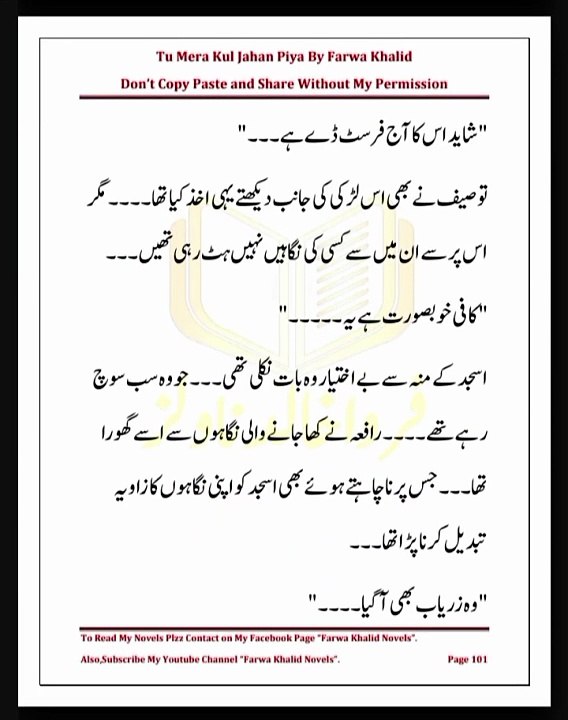 Tu Mera Kul Jahan Piya By Farwa Khalid
Don't Copy Paste and Share Without My Permission
"شاید اس کا آج فرسٹ ڈے ہے۔۔۔"
توصیف نے بھی اس لڑکی کی جانب دیکھتے یہی اخذ کیا تھا۔۔۔۔ مگر
اس پر سے ان میں سے کسی کی نگاہیں نہیں ہٹ رہی تھیں۔۔۔
"کافی خوبصورت ہے یہ۔۔۔۔۔"
اسجد کے منہ سے بے اختیار وہ بات نکلی تھی۔۔۔ جو وہ سب سوچ
رہے تھے۔۔۔۔ رافعہ نے کھا جانے والی نگاہوں سے اسے گھورا
تھا۔۔۔ جس پر نا چاہتے ہوئے بھی اسجد کو اپنی نگاہوں کا زاویہ
تبدیل کرنا پڑا تھا۔۔۔
"وہ زریاب بھی آ گیا۔۔۔۔"
To Read My Novels Plzz Contact on My Facebook Page "Farwa Khalid Novels".
Also,Subscribe My Youtube Channel "Farwa Khalid Novels". Page 101